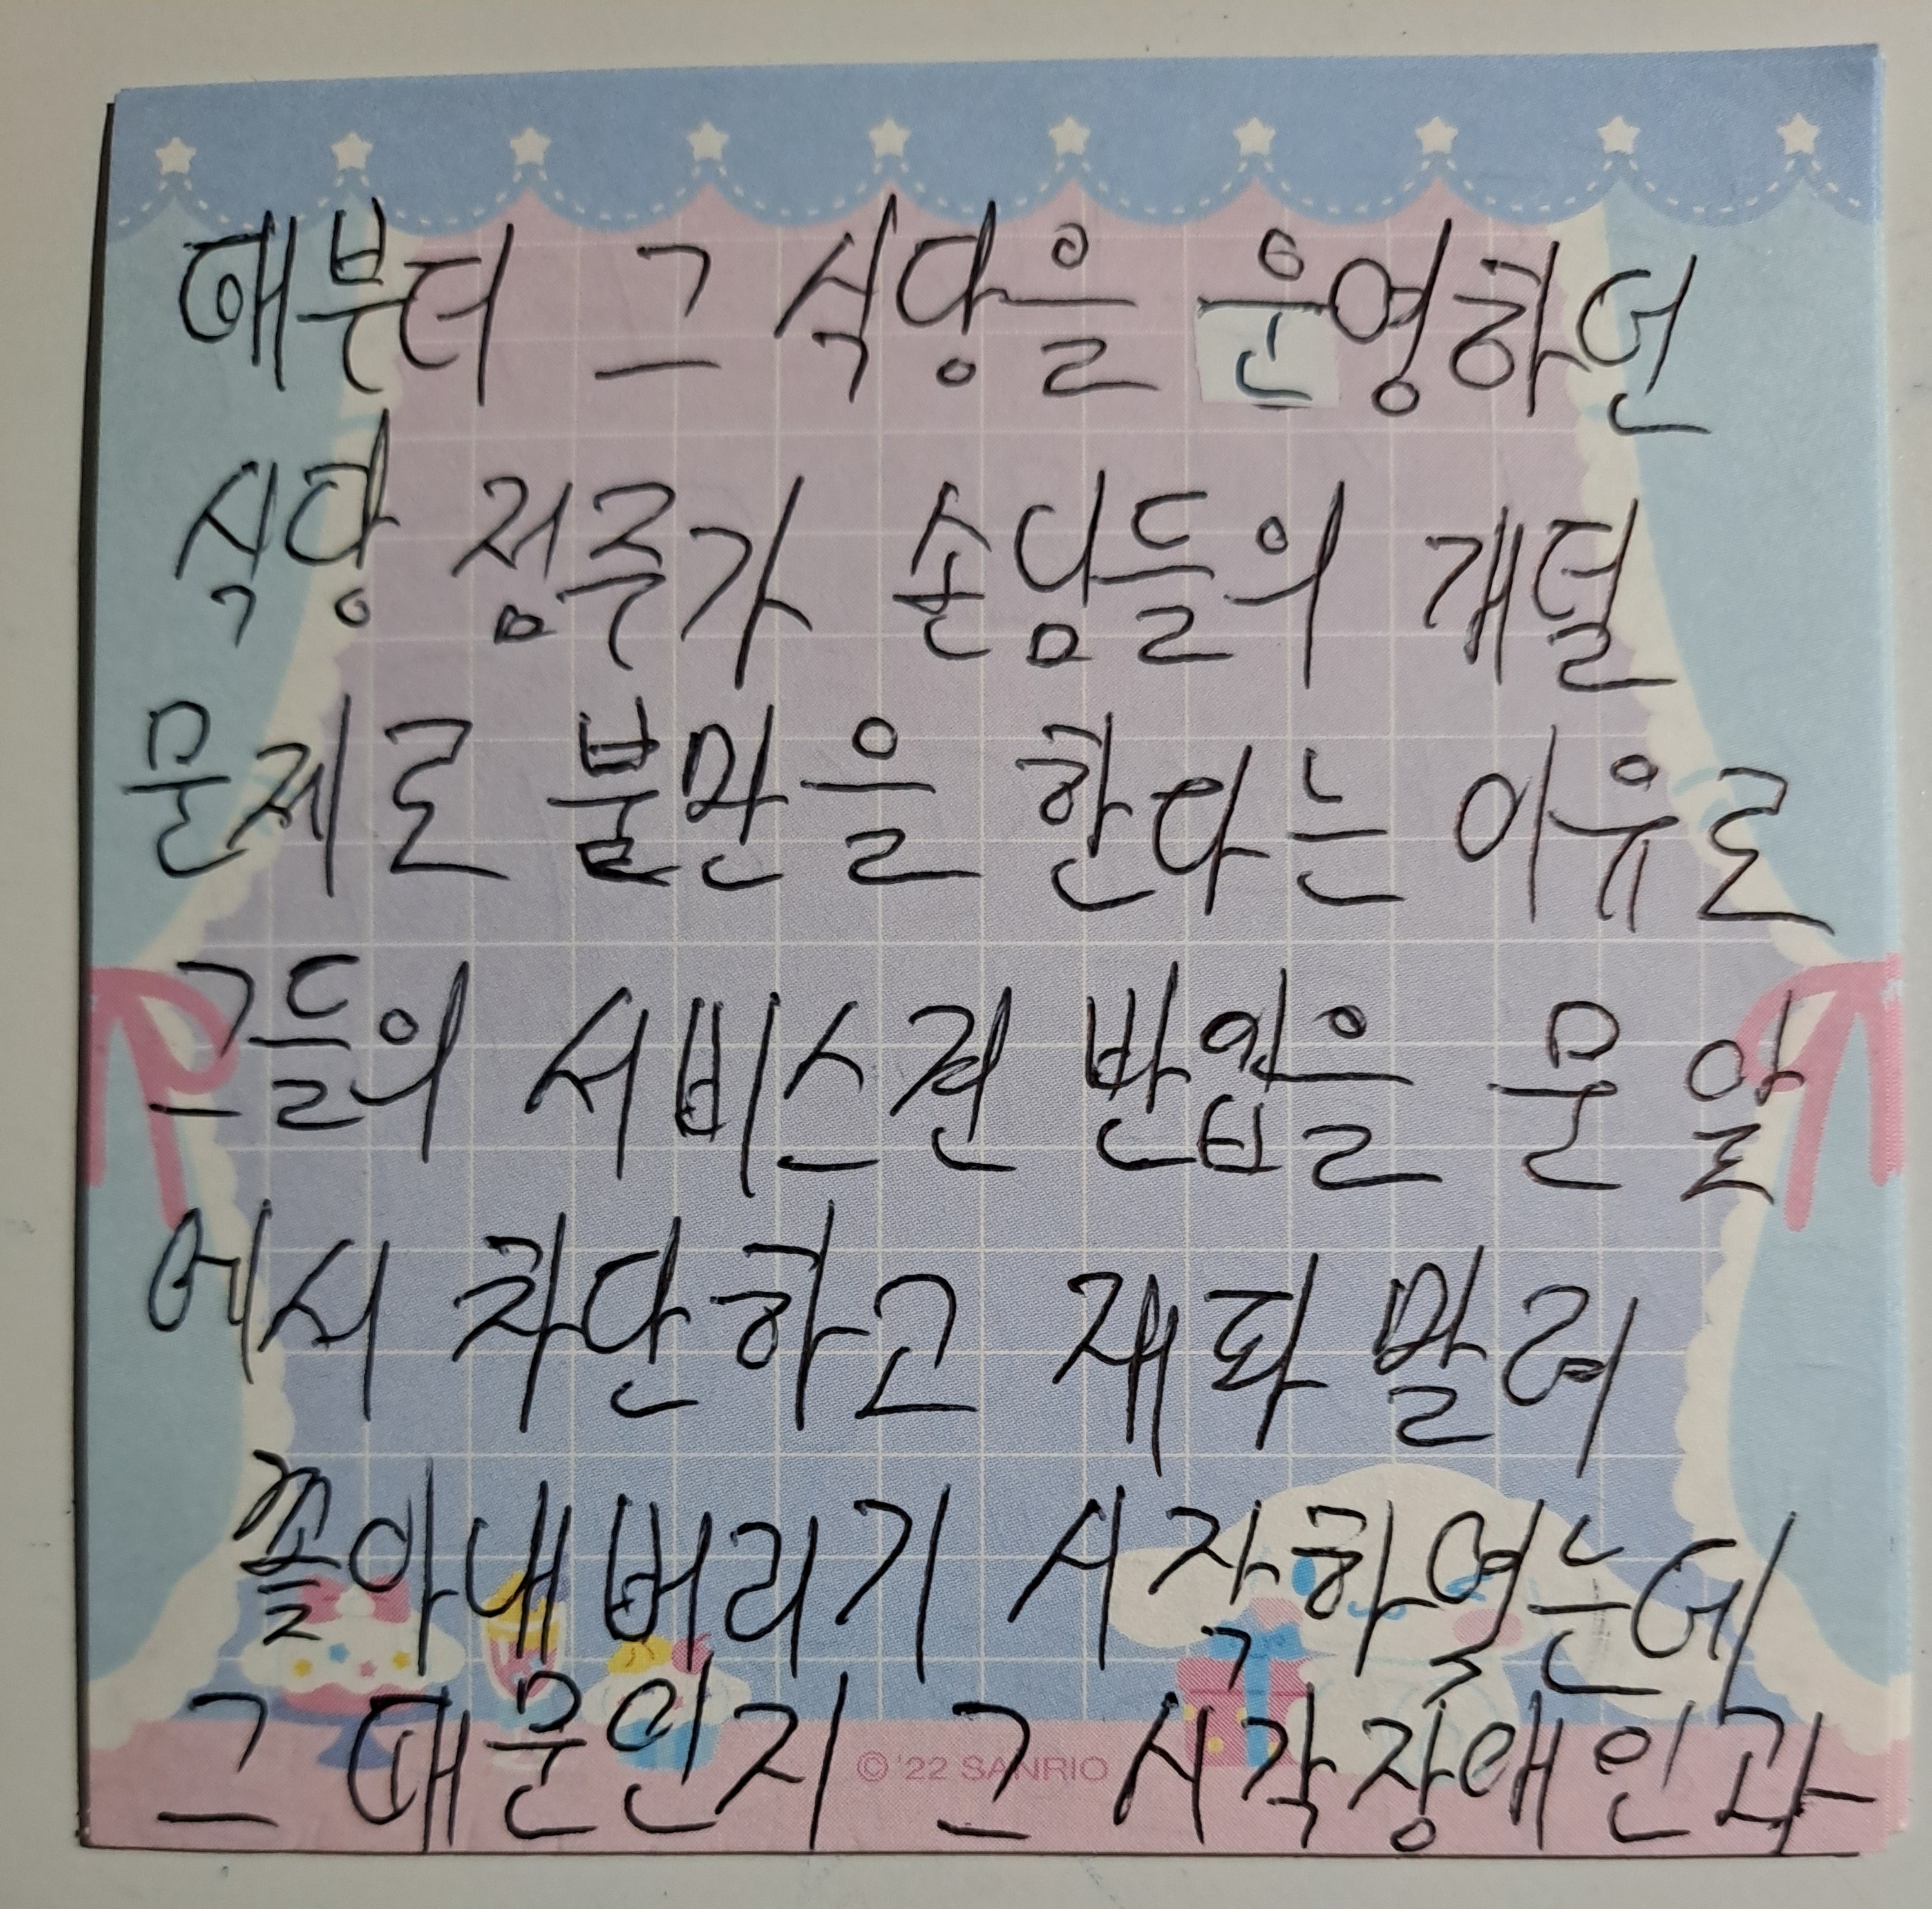 때부터 그 식당을 운영하던
식당 점주가 손님들의 개털
문제로 불만을 한다는 이유로
그들의 서비스견 반입을 문 앞
에서 차단하고 재파 말려
쫓아내버리기 시작하였는데
그 때문인지 그 시각장애인과
© '22 SANRIO